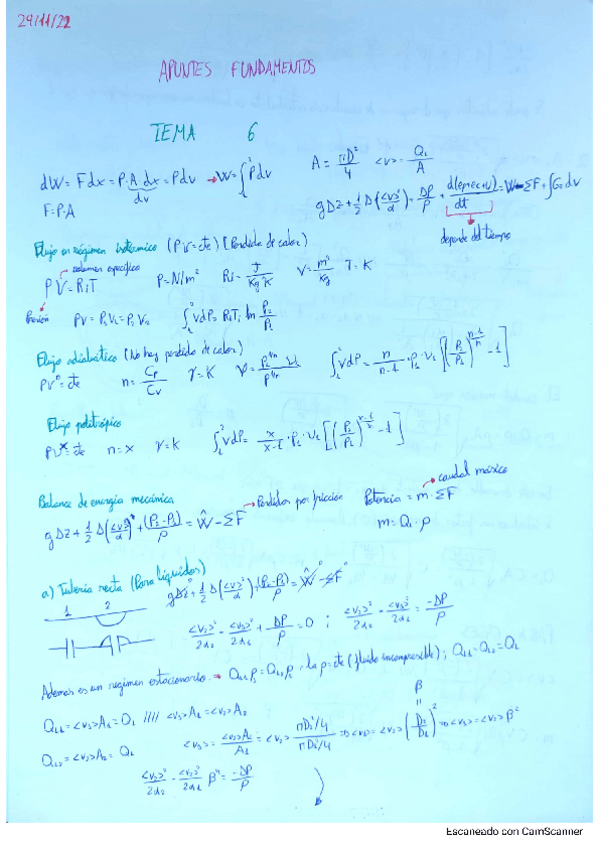 29/11/22
APUNTES FUNDAMENTOS
TEMA 6
dW = Fdx = P·A·dx = Pdv → W = ∫₁² Pdv
dv
F = P·A
A = πD²/4 <v> = Q₁/A
gDz + 1/2 Δ(<v>²/α) + DP/ρ + d(ep+ec+u)/dt = W - ΣF + ∫G₀dv
depende del tiempo
Flujo en régimen isotérmico (PV = cte) [Perdida de calor)
volumen especifico
PV = R₁T P = N/m² R₁ = J/Kg°K V = m³/Kg T = K
Presión
PV = P₁V₁ = P₂V₂ ∫₁² vdP = R₁T₁ ln P₂/P₁
Flujo adiabático (No hay perdida de calor)
PVⁿ = cte n = Cp/Cv γ = K V = P₁^(1/n) V₁/P^(1/n) ∫₁² vdP = n/(n-1) · P₁ · V₁ [(P₂/P₁)^((n-1)/n) - 1]
Flujo politrópico
PVˣ = cte n = x γ = K ∫₁² vdP = x/(x-1) · P₁ · V₁ [(P₂/P₁)^((x-1)/x) - 1]
Balance de energía mecánica
gDz + 1/2 Δ(<v>²/α) + (P₂-P₁)/ρ = Ŵ - ΣF
Perdidas por fricción
Potencia = m · ΣF
caudal másico
m = Q₁ · ρ
a) Tubería recta (Para líquidos)
gDz⁰ + 1/2 Δ(<v>²/α) + (P₂-P₁)/ρ = Ŵ⁰ - ΣF⁰
1 2
<v₂>²/2α₂ - <v₁>²/2α₁ + DP/ρ = 0 ; <v₂>²/2α₂ - <v₁>²/2α₁ = -DP/ρ
Además es un régimen estacionario → Q₁,₁ρ₁ = Q₁,₂ρ₂, la ρ = cte (fluido incompresible); Q₁,₁ = Q₁,₂ = Q₁
Q₁,₁ = <v₁>A₁ = Q₁ //// <v₁>A₁ = <v₂>A₂
Q₁,₂ = <v₂>A₂ = Q₁
<v₁> = <v₂>A₂/A₁ = <v₂> πD₂²/4 / πD₁²/4 ⇒ <v₁> = <v₂> (D₂/D₁)² ⇒ <v₁> = <v₂> β²
β
=
<v₂>²/2α₂ - <v₂>²/2α₁ β⁴ = -DP/ρ
Escaneado con CamScanner